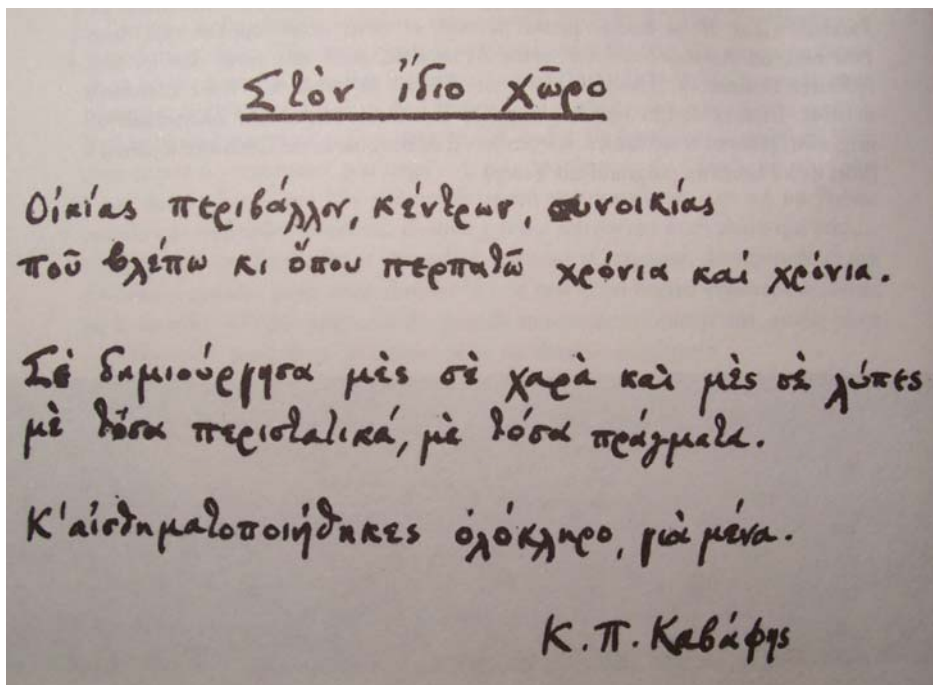 Στὸν ἴδιο χῶρο
Οἰκίας περιβάλλον, κέντρων, συνοικίας
ποῦ βλέπω κι ὅπου περπατῶ χρόνια καὶ χρόνια.
Σὲ δημιούργησα μὲς σὲ χαρὰ καὶ μὲς σὲ λύπες
μὲ τόσα περιστατικά, μὲ τόσα πράγματα.
Κ' αἰσθηματοποιήθηκες ὁλόκληρο, γιὰ μένα.
Κ. Π. Καβάφης